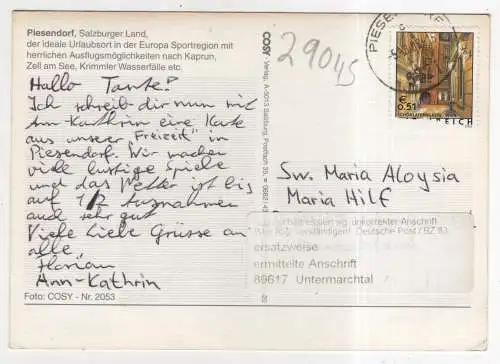 Piesendorf, Salzburger Land,
der ideale Urlaubsort in der Europa Sportregion mit
herrlichen Ausflugsmöglichkeiten nach Kaprun,
Zell am See, Krimmler Wasserfälle etc.
Hallo Tante!
Ich schreib dir nun mit
Ann-Kathrin eine Karte
aus unserer "Freizeit" in
Piesendorf. Wir machen
viele lustige Spiele
und das Wetter ist bis
auf 1/2 Ausnahmen
auch sehr gut
Viele Liebe Grüsse an
alle
Florian
Ann-Kathrin
Foto: COSY - Nr. 2053
COSY Verlag, A-5013 Salzburg, Postfach
29045
PIESENDORF
€ 0.51
Sw. Maria Aloysia
Maria Hilf
unkorrekter Anschrift
Deutsche Post
ersatzweise
ermittelte Anschrift
89617 Untermarchtal